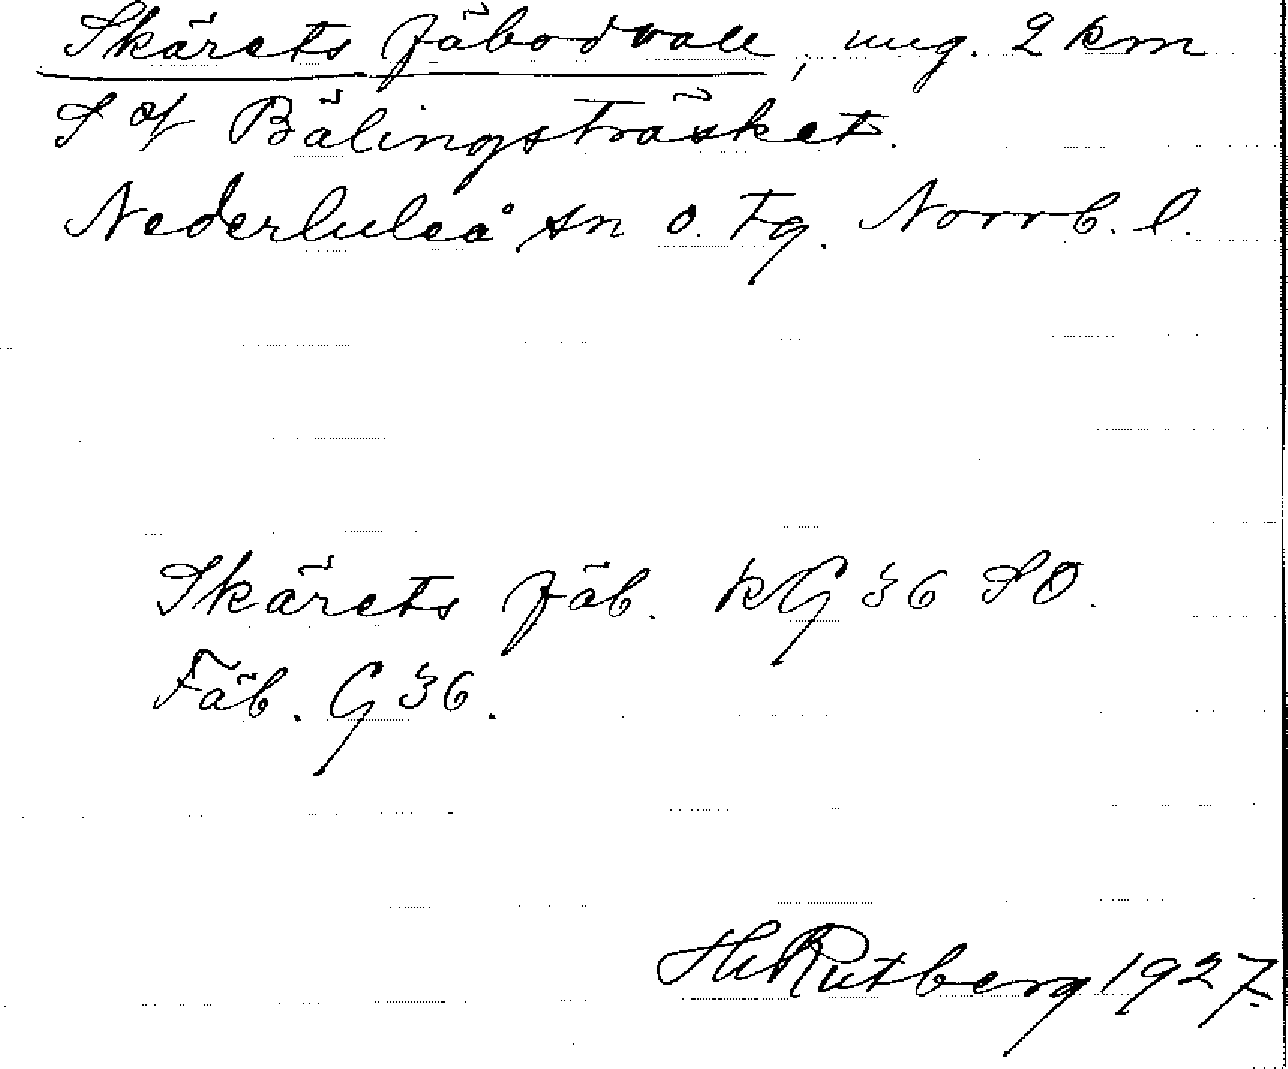 Skärets fäbodvall, ung. 2 km
S of Bälingsträsket.
Nederluleå sn o. tg. Norrb. l.
Skärets fäb. kG 36 SO.
Fäb. G 36.
H Rutberg 1927.